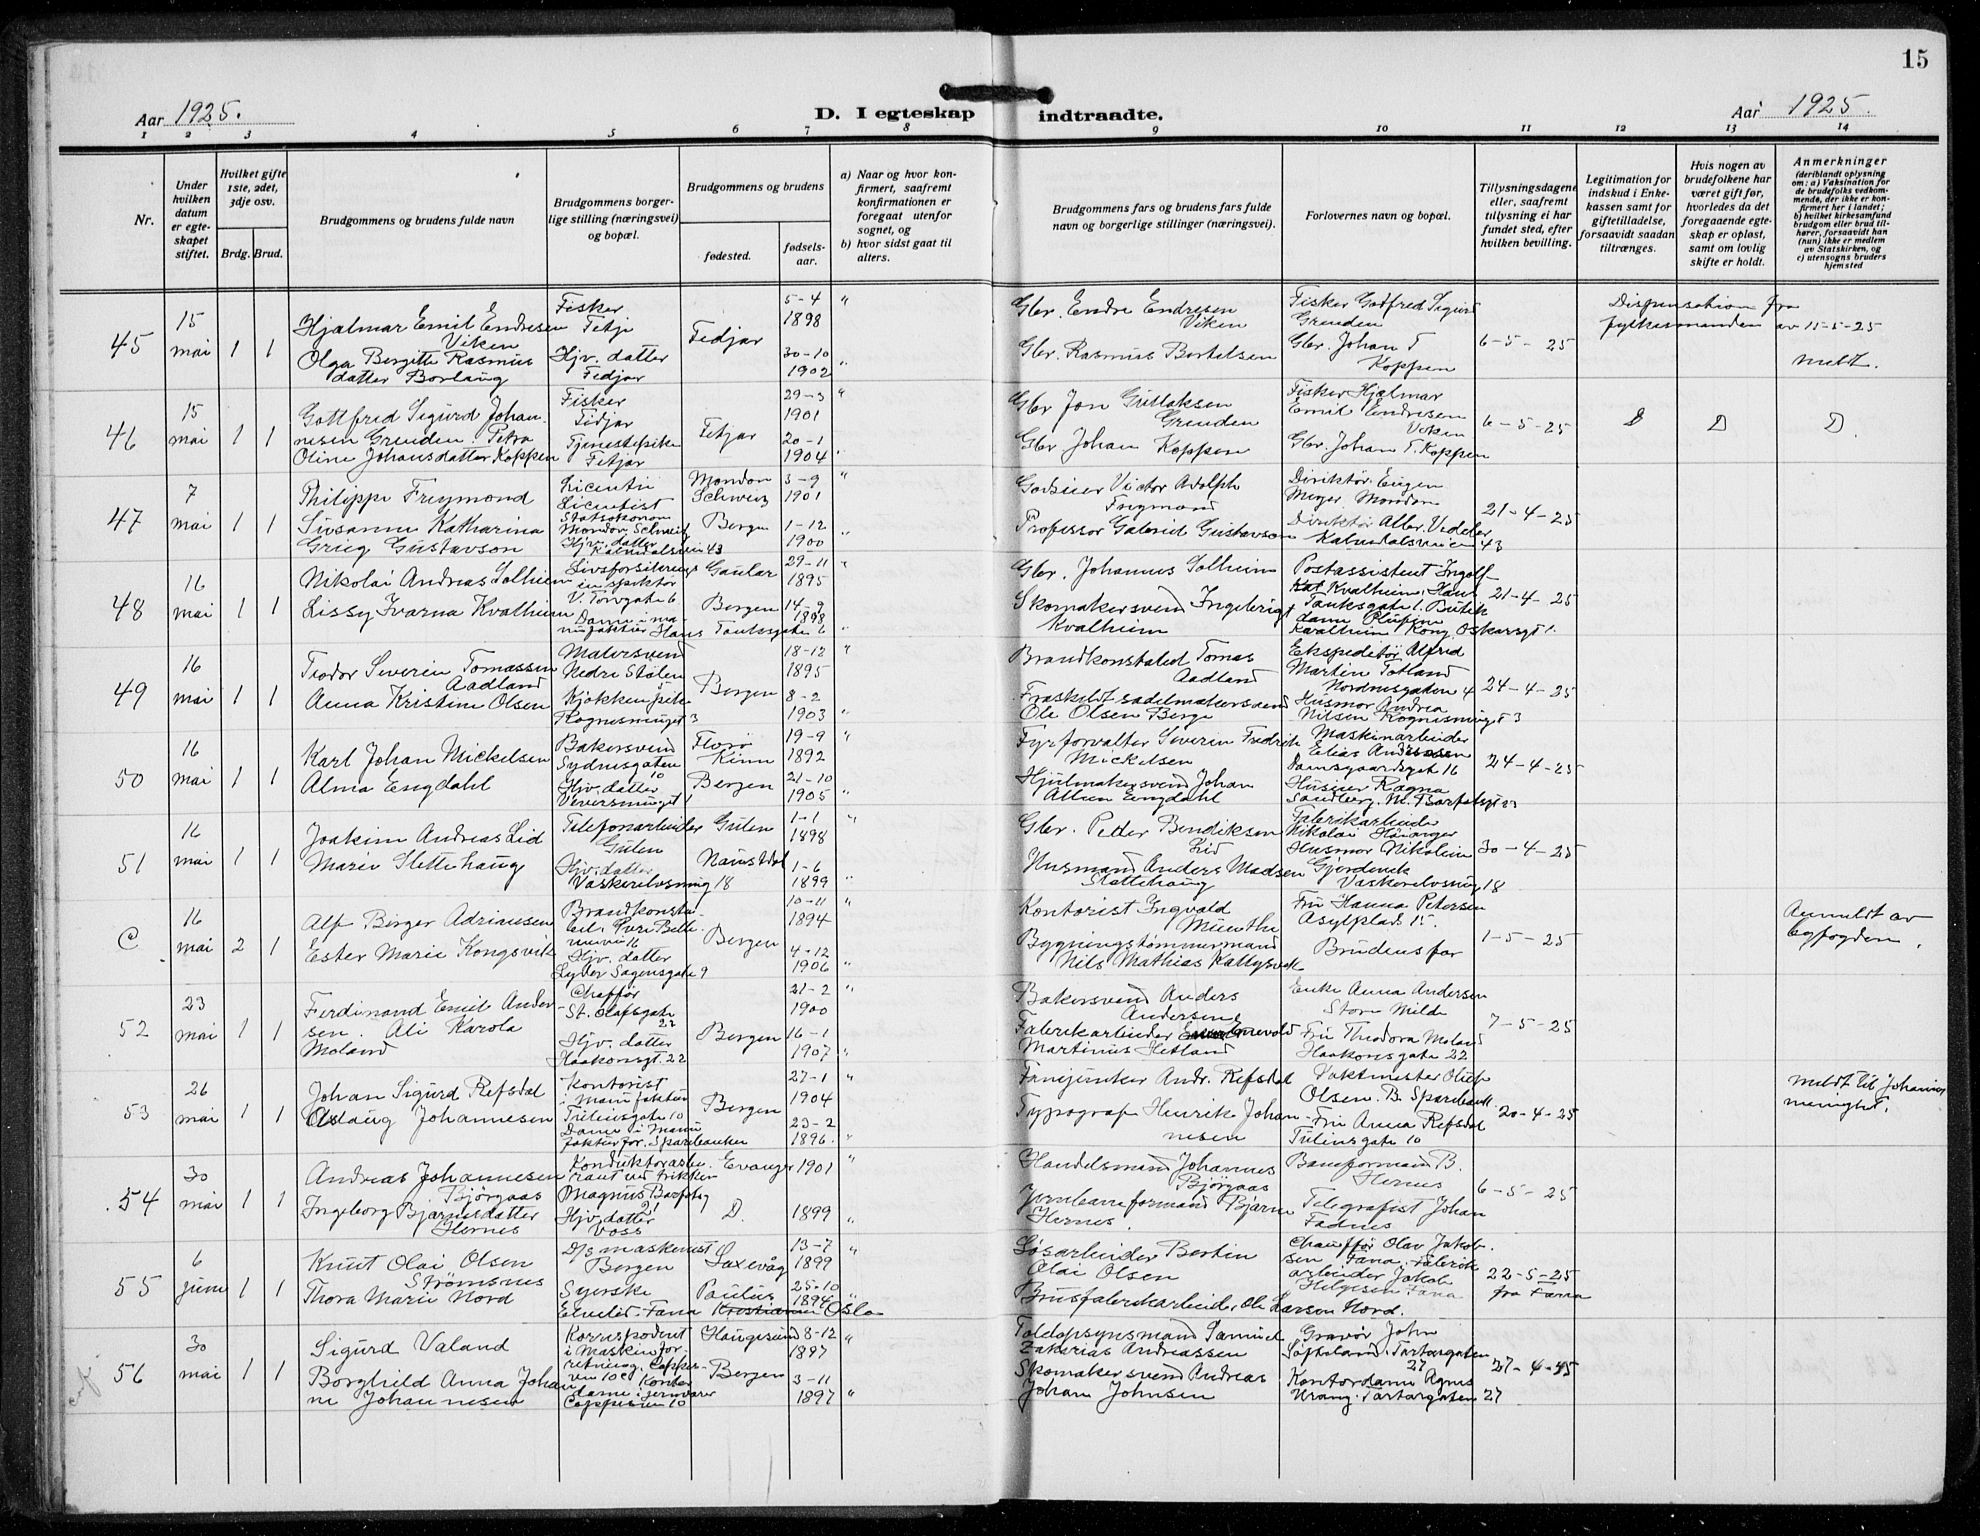 15
Aar 1925.
D. I egteskap indtraadte.
Aar 1925.
1 2 3 4 5 6 7 8 9 10 11 12 13 14
Nr.
Under hvilken datum er egte-skapet stiftet.
Hvilket gifte 1ste, 2det, 3dje osv.
Brdg. Brud.
Brudgommens og brudens fulde navn
Brudgommens borger-lige stilling (næringsvei) og bopæl.
Brudgommens og brudens
fødested.
fødsels-aar.
a) Naar og hvor kon-firmert, saafremt konfirmationen er foregaat utenfor sognet, og
b) hvor sidst gaat til alters.
Brudgommens fars og brudens fars fulde navn og borgerlige stillinger (næringsvei).
Forlovernes navn og bopæl.
Tillysningsdagene eller, saafremt tillysning ei har fundet sted, efter hvilken bevilling.
Legitimation for indskud i Enke-kassen samt for giftetilladelse, forsaavidt saadan tiltrænges.
Hvis nogen av brudefolkene har været gift før, hvorledes da det foregaaende egte-skap er opløst, samt om lovlig skifte er holdt.
Anmerkninger (deriblandt oplysning om: a) Vaksination for de brudefolks vedkom-mende, der ikke er kon-firmert her i landet; b) hvilket kirkesamfund brudgom eller brud til-hører, forsaavidt han (hun) ikke er medlem av Statskirken, og c) utensogns bruders hjemsted
45
15 mai
1 1
Hjalmar Emil Endresen
Viken
Olga Bergitte Rasmus
datter Borlaug
Fisker
Hjv. datter
Fedjar
Fedjar
5-4
1898
30-10
1902
Gbr. Endre Endresen
Viken
Gbr. Rasmus Bertelsen
Fisker Gotfred Sigurd
Grenden
Gbr. Johan T
Koppen
6-5-25
Dispensation fra
fylkesmanden av 11-5-25
meldt.
46
15 mai
1 1
Gottfred Sigurd Johan
nesen Grenden. Petra
Oline Johansdatter Koppen
Fisker
Fidjar
Tjenestepike
Fetjar
Fetjar
29-3
1901
20-1
1904
Gbr Jon Gullaksen
Grenden
Gbr Johan Koppen
Fisker Hjalmar
Emil Endresen
Viken
Gbr. Johan T. Koppen
6-5-25
D D D.
47
7 mai
1 1
Philippe Freymond
Susanne Katharina
Grieg Gustavson
Licentist
Statsøkonom
Hjv. datter
Kalvedalsveien 43
Schweiz
Bergen
3-9
1901
1-12
1900
Godseier Victor Adolph
Freymond
Professor Gabriel Gustavson
Direktør Eugen
Meyer
Direktør Vedeler
Kalvedalsveien 43
21-4-25
48
16 mai
1 1
Nikolai Andreas Solheim
Lissy Ivarna Kvalheim
Livsforsikrings
inspektør
V. Torvgate 6
Hans Tanksgate 6
Gaular
Bergen
29-11
1895
14-9
1898
Gbr. Johannes Solheim
Skomakersvend Ingebrigt
Kvalheim
Postassistent Ingolf
Kvalheim Hans
Tanksgate 1. Butik
dame
Kvalheim Kong Oskarsgt 1.
21-4-25
49
16 mai
1 1
Teodor Severin Tomassen
Aadland
Anna Kristine Olsen
Malersvend
Nedre Stølen
Kjøkkenpike
Rognesmuget 3
Bergen
18-12
1895
8-2
1903
Brandkonstabel Tomas
Aadland
Fraskilt sadelmakersvend
Ole Olsen Berge
Ekspeditør Alfred
Martin Totland
Nordnesgaten 4
Husmor Andrea
Nilsen Rognesmuget 3
24-4-25
50
16 mai
1 1
Karl Johan Mickelsen
Alma Engdahl
Bakersvend
Sydnesgaten
10
Hjv. datter
Veversmuget 1
Florø
Kinn
Bergen
19-9
1892
21-10
1905
Fyrforvalter Severin Fredrik
Mickelsen
Hjulmakersvend Johan
Engdahl
Maskinarbeider
Elias Andreassen
Damsgaardsgt 16
Ragna
Sandberg. M. Barfotsgt 23
24-4-25
51
16 mai
1 1
Joakim Andreas Lid
Marie Slettehaug
Telefonarbeider
Gulen
Hjv. datter
Vaskerelvsmug 18
Gulen
Naustdal
1-1
1898
1-6
1899
Gbr. Peder Bendiksen
Lid
Husmand Anders Madsen
Slettehaug
Fabrikarbeider
Nikolai Høivanger
Husmor Nikoline
Gjordevik
Vaskerelvsmug 18
30-4-25
C
16 mai
2 1
Alf Birger Adriansen
Ester Marie Kongsvik
Brandkonsta-
bel. Øvre Blekeveien 16
Hjv. datter
Lyder Sagensgate 9
Bergen
10-11
1894
4-12
1906
Kontorist Ingvald
Munthe
Bygningstømmermand
Nils Mathias
Fru Hanna Petersen
Asylplads 15.
Brudens far
1-5-25
Anmeldt av
byfogden.
52
23 mai
1 1
Ferdinand Emil Ander
sen. Ali Karola
Moland
Chaffør
St. Olafsgate
22
Hjv. datter
Haakonsgt. 22
Bergen
21-2
1900
16-1
1907
Bakersvend Anders
Andersen
Fabrikarbeider Enevold
Martinus Hetland
Enke Anna Andersen
Store Milde
Fru Theodora Moland
Haakonsgate 22
7-5-25
53
26 mai
1 1
Johan Sigurd Refsdal
Aslaug Johannesen
Kontorist
i Manufaktur
Tuliusgate 10
Dame i Manu
faktur for. Sparebanken
Bergen
27-1
1904
23-2
1896.
Fanejunker Andr. Refsdal
Typograf Henrik Johan-
nesen
Vaktmester Oluf
Olsen. B. Sparebank.
Fru Anna Refsdal
Tuliusgate 10
20-4-25
meldt til Johannes
menighet.
54
30 mai
1 1
Andreas Johannesen
Bjørgaas
Ingeborg Bjarnesdatter
Hernes
Konduktøraspi
rant ved trikken
Magnus Barfotsg
21
Hjv. datter
Voss
Evanger
D.
1901
1899
Handelsmand Johannes
Bjørgaas
Jernbaneformand Bjarne
Hernes.
Baneformand B.
Hernes
Telegrafist Johan
Fadnes
6-5-25
55
6 juni
1 1
Knut Olai Olsen
Strømsnes
Thora Marie Nord
D/s maskinist
Bergen
Syerske
Fana
Laxevåg
Paulus
Kristiania Oslo
13-7
1899
25-10
1894
Løsarbeider Bertin
Olai Olsen
Brusfabrikarbeider Ole Larsen Nord.
Chauffør Olav Jakob-
sen Fana. Fabrik
arbeider Jakob
Helgesen Fana
22-5-25
fra Fana
56
30 mai
1 1
Sigurd Valand
Borghild Anna Johan
ne Johannesen
Korrespodent
i Maskinfor-
retning. Copper-
vei 10c Kontor
dame i jernvare
Haugesund
Bergen
8-12
1897
3-11
1897
Toldopsynsmand Samuel
Zakarias Andreassen
Skomakersvend Andreas
Johan Johnsen
Gravør John
Søfteland. Tartargaten
27
Kontordame Agnes
Urang. Tartargaten 27
27-4-25